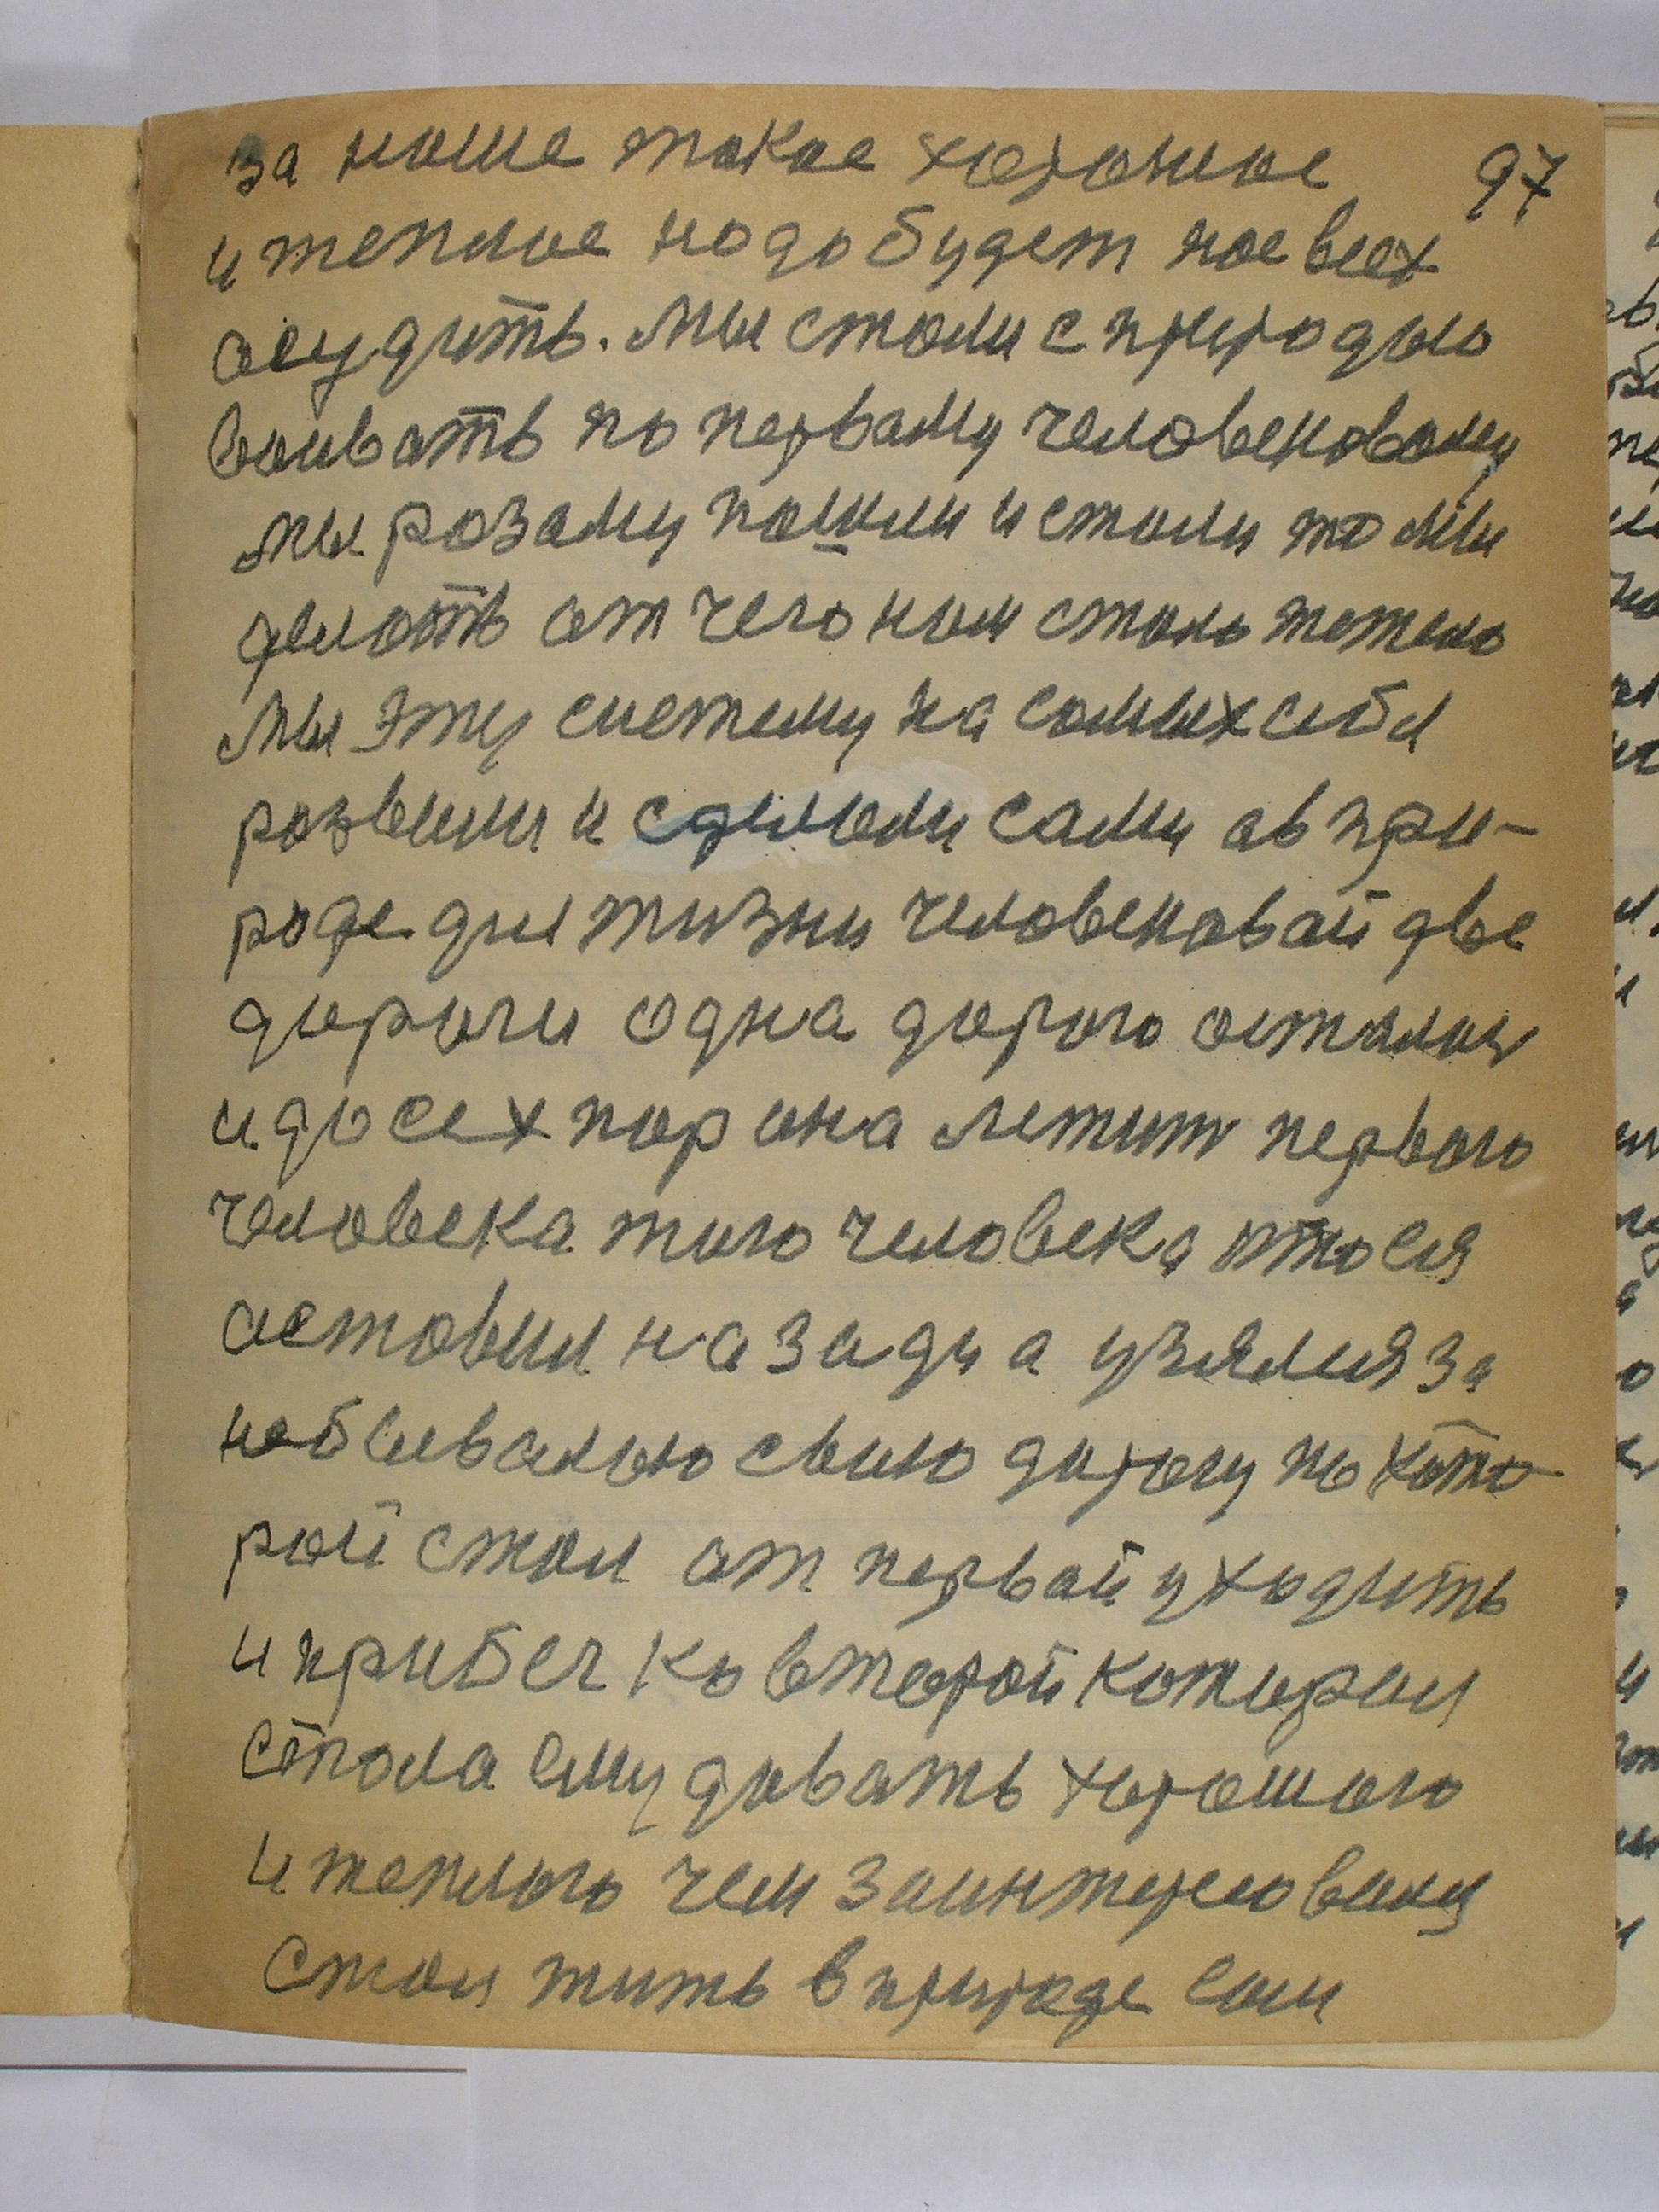 за наше такое хорошое 97
и теплое надо будет нас всех
асудить. Мы стали с природаю
воивать по перваму человековаму
мы розаму пошли и стали то мы
делоть от чего нам стало тежело
Мы эту систему на самих себя
розвили и сделоли сами а в при-
роде для жизни человековай две
дороги одна дорого осталася
и до сех пор она лежит первого
человека того человека что ея
аставил назади а узялся за
небывалою свою дорогу по кото
рой стал от первай уходить
и прибег ко второй которая
стала ему довать хорошого
и теплого чем заинтересовану
стал жить в природе сам